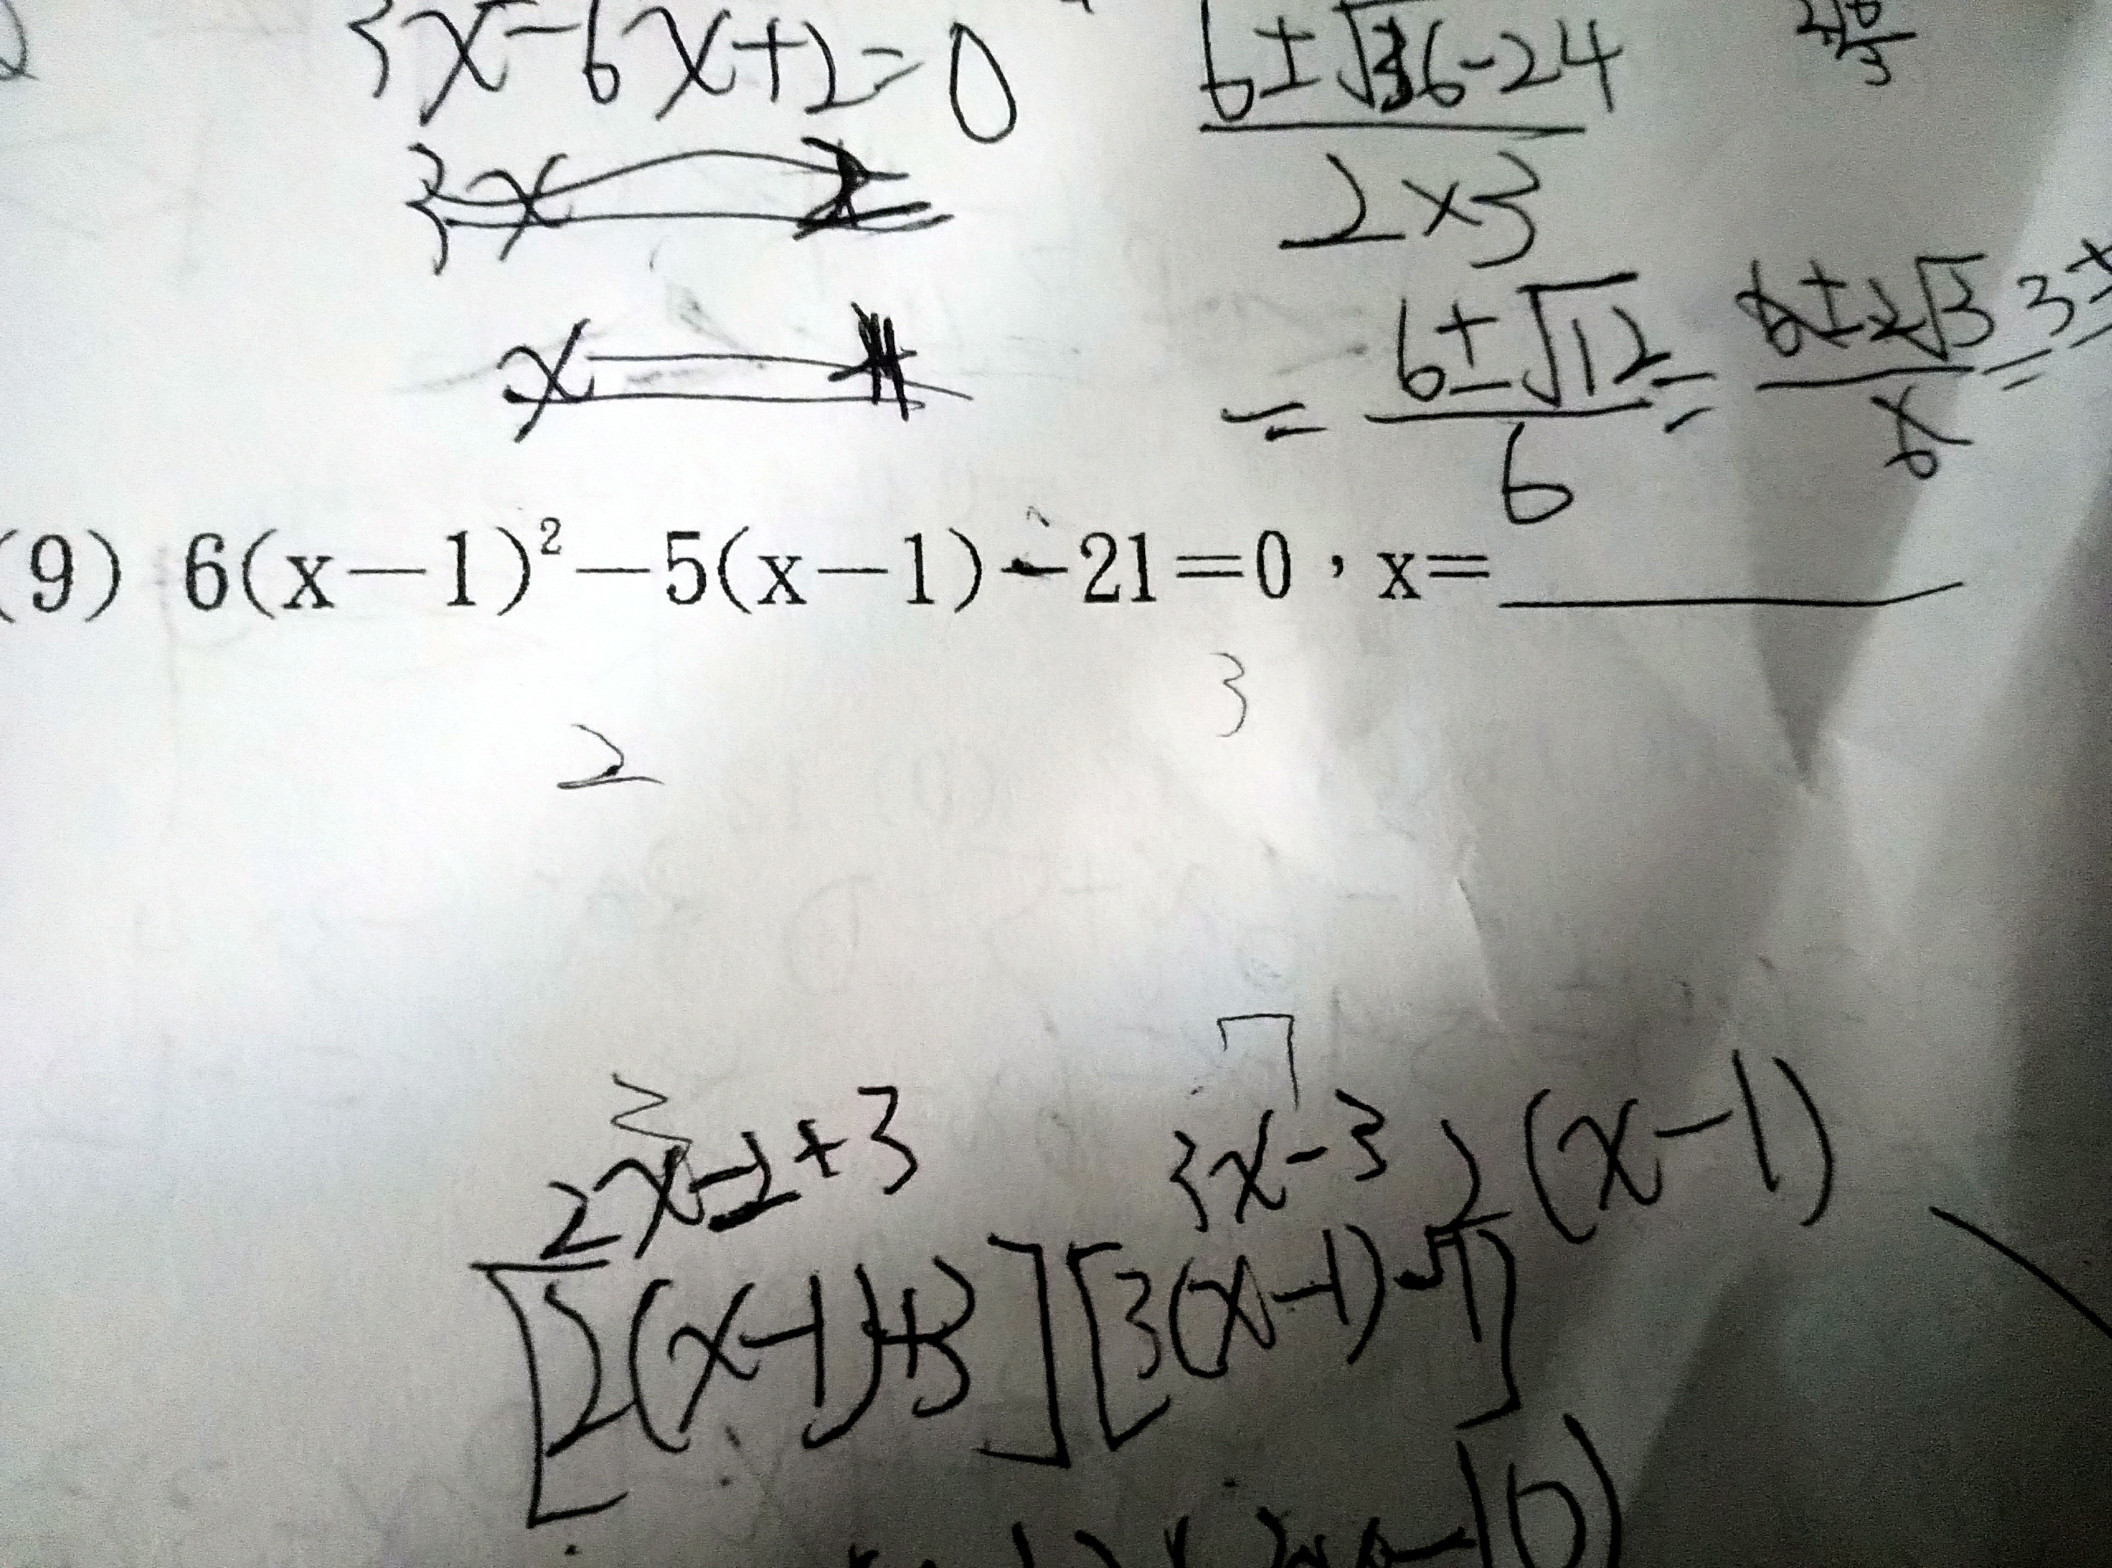 3x-6x+2=0
6±√36-24
2×3
3x
x
= 6±√12 = 6±2√3 = 3±
6 6
(9) 6(x-1)²-5(x-1)-21=0，x=
3
2
7
3
2x-2+3 3x-3 2(x-1)
[2(x-1)+3][3(x-1)-7]
-10)